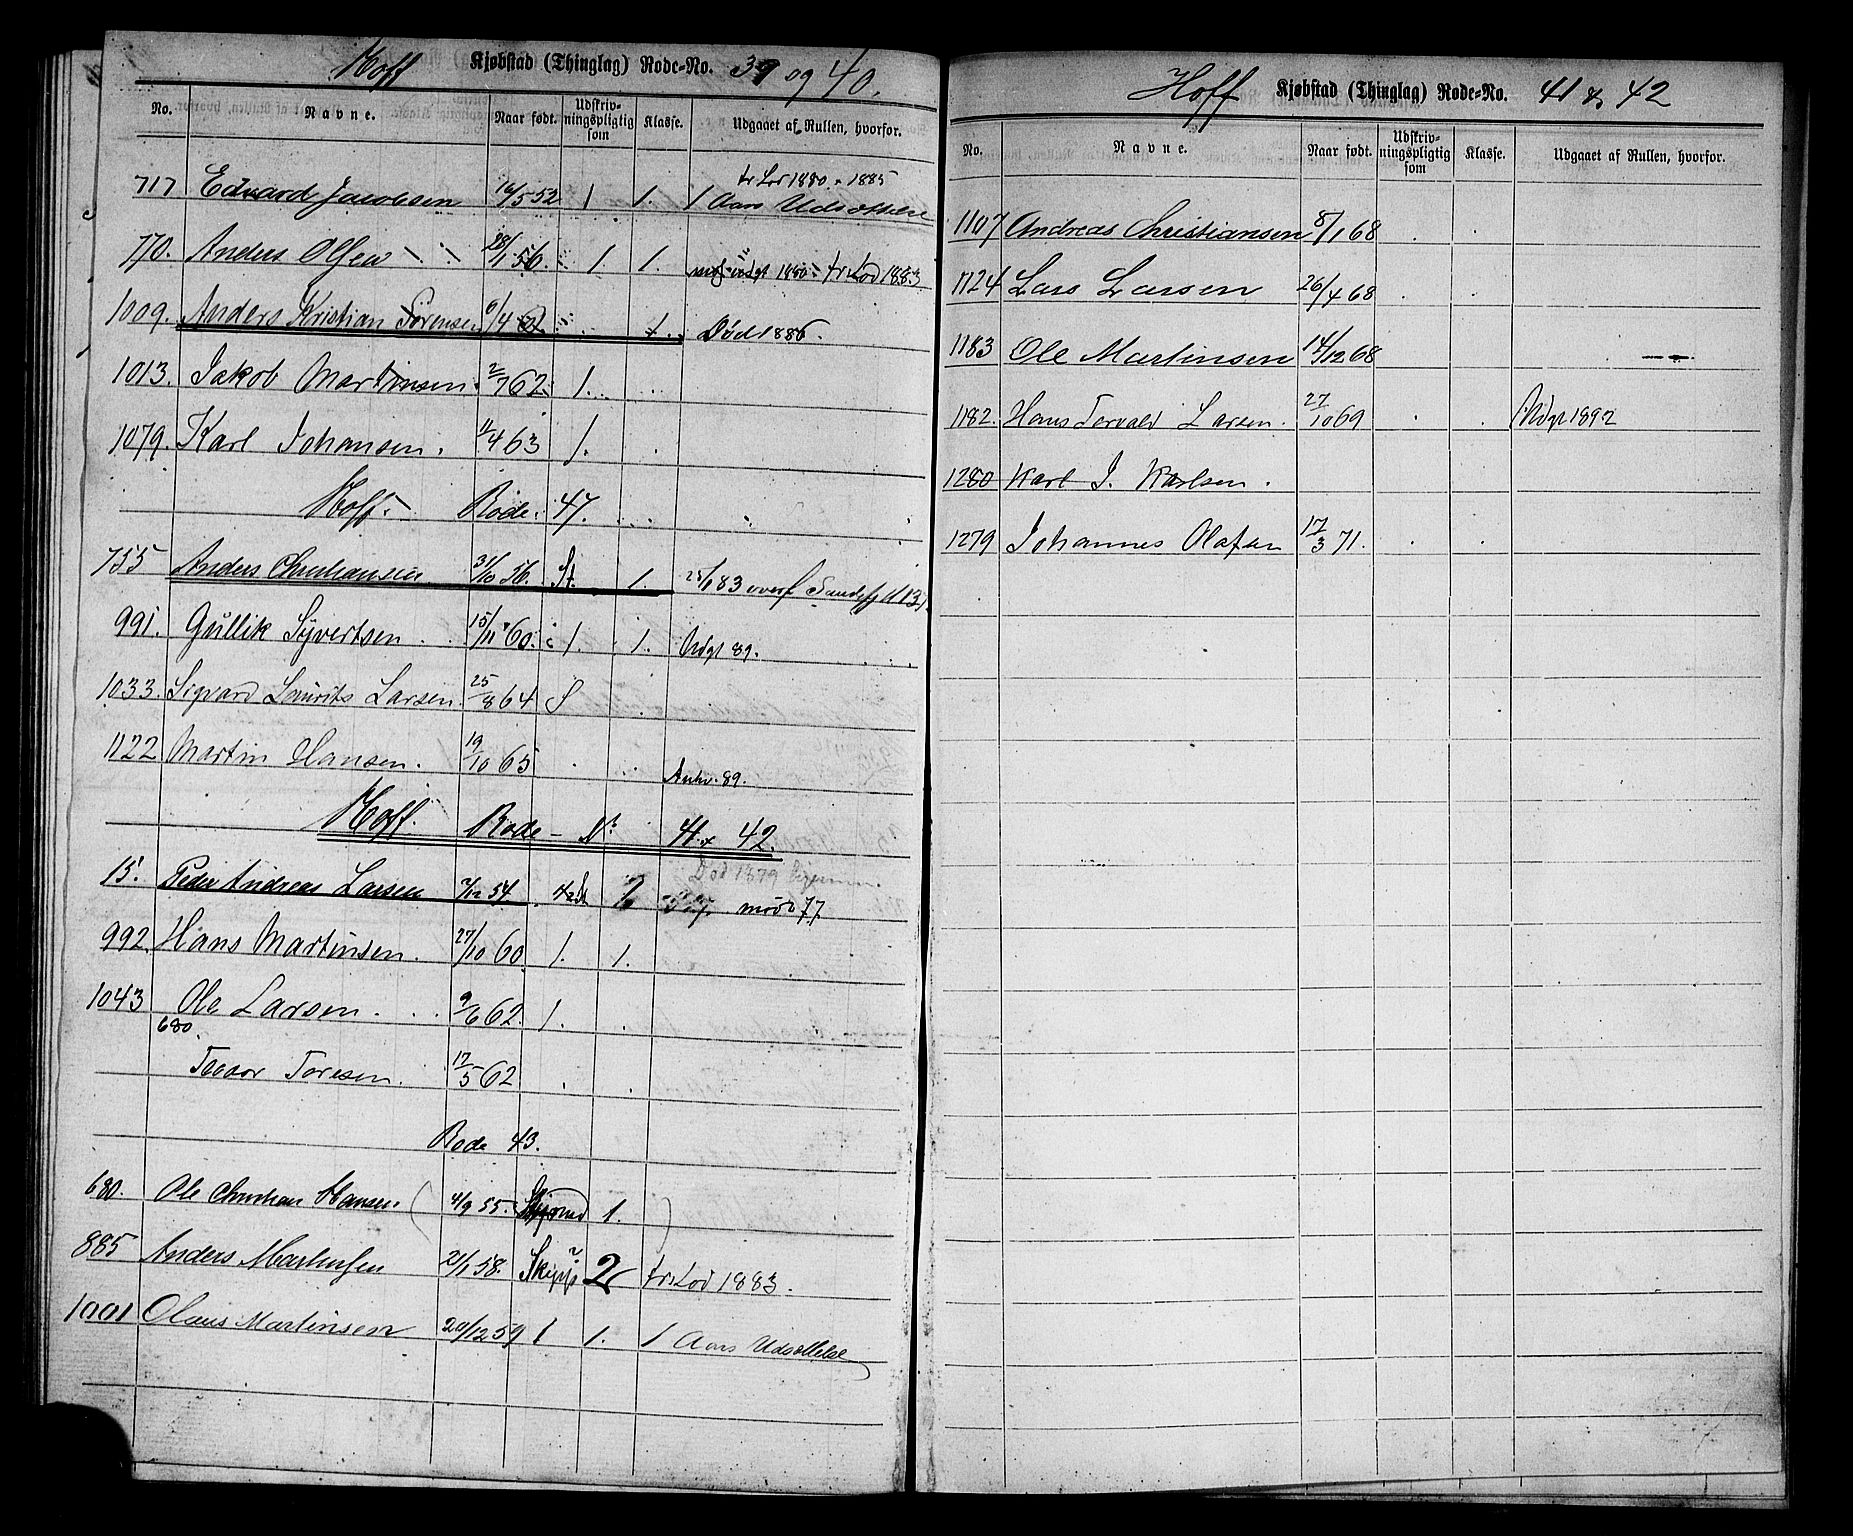 Hoff Kjøbstad (Thinglag) Rode-No. 39 og 40.
No. Navne. Naar født. Udskrivningspligtig som Klasse. Udgaaet af Rullen, hvorfor.
fr Lod 1880 - 1885
717 Edvard Jacobsen 16/5 52 1 1. 1 Aars Udsættelse
770. Anders Olsen 28/1 56. 1 1. 1880 - fr. Lod 1883
1009. Anders Kristian Sørensen 6/4 62 1. Død 1886.
1013. Jakob Martinsen. 2/7 62. 1.
1079. Karl Johansen. 11/4 63 1.
Hoff. Rode. 47.
755 Anders Christiansen 31/10 56. St. 1. 23/1 83 overf Sandefj
991. Gullik Syvertsen 15/11 60. 1. 1. Udgt 89.
1033. Sigvard Laurits Larsen. 25/8 64 S
1122 Martin Hansen. 19/10 65 Anhv. 89.
Hoff. Rode - Nr 41 & 42.
Død 1879
15. Peder Andreas Larsen 7/12 54. 2 mødt 77
992. Hans Martinsen. 27/10 60. 1. 1.
1043 Ole Larsen. 9/6 62. 1.
680.
Toresen. 17/5 62
Rode 43.
680. Ole Christian Hansen ( 4/9 55. 1. )
885 Anders Mathisen 21/1 58. Skipp 2 fr. Lod 1883.
1001 Olaus Martinsen 20/12 59 1 1. 1 Aars Udsættelse
Hoff Kjøbstad (Thinglag) Rode-No. 41 & 42
No. Navne. Naar født. Udskrivningspligtig som Klasse. Udgaaet af Rullen, hvorfor.
1107 Andreas Christiansen 8/1 68
1124 Lars Larsen 26/4 68
1183 Ole Martinsen 14/12 68
1182. Hans Torvald Larsen. 27/10 69 Udgt 1892
1280 Karl J. Karlsen.
1279 Johannes Olafsen 17/3 71.